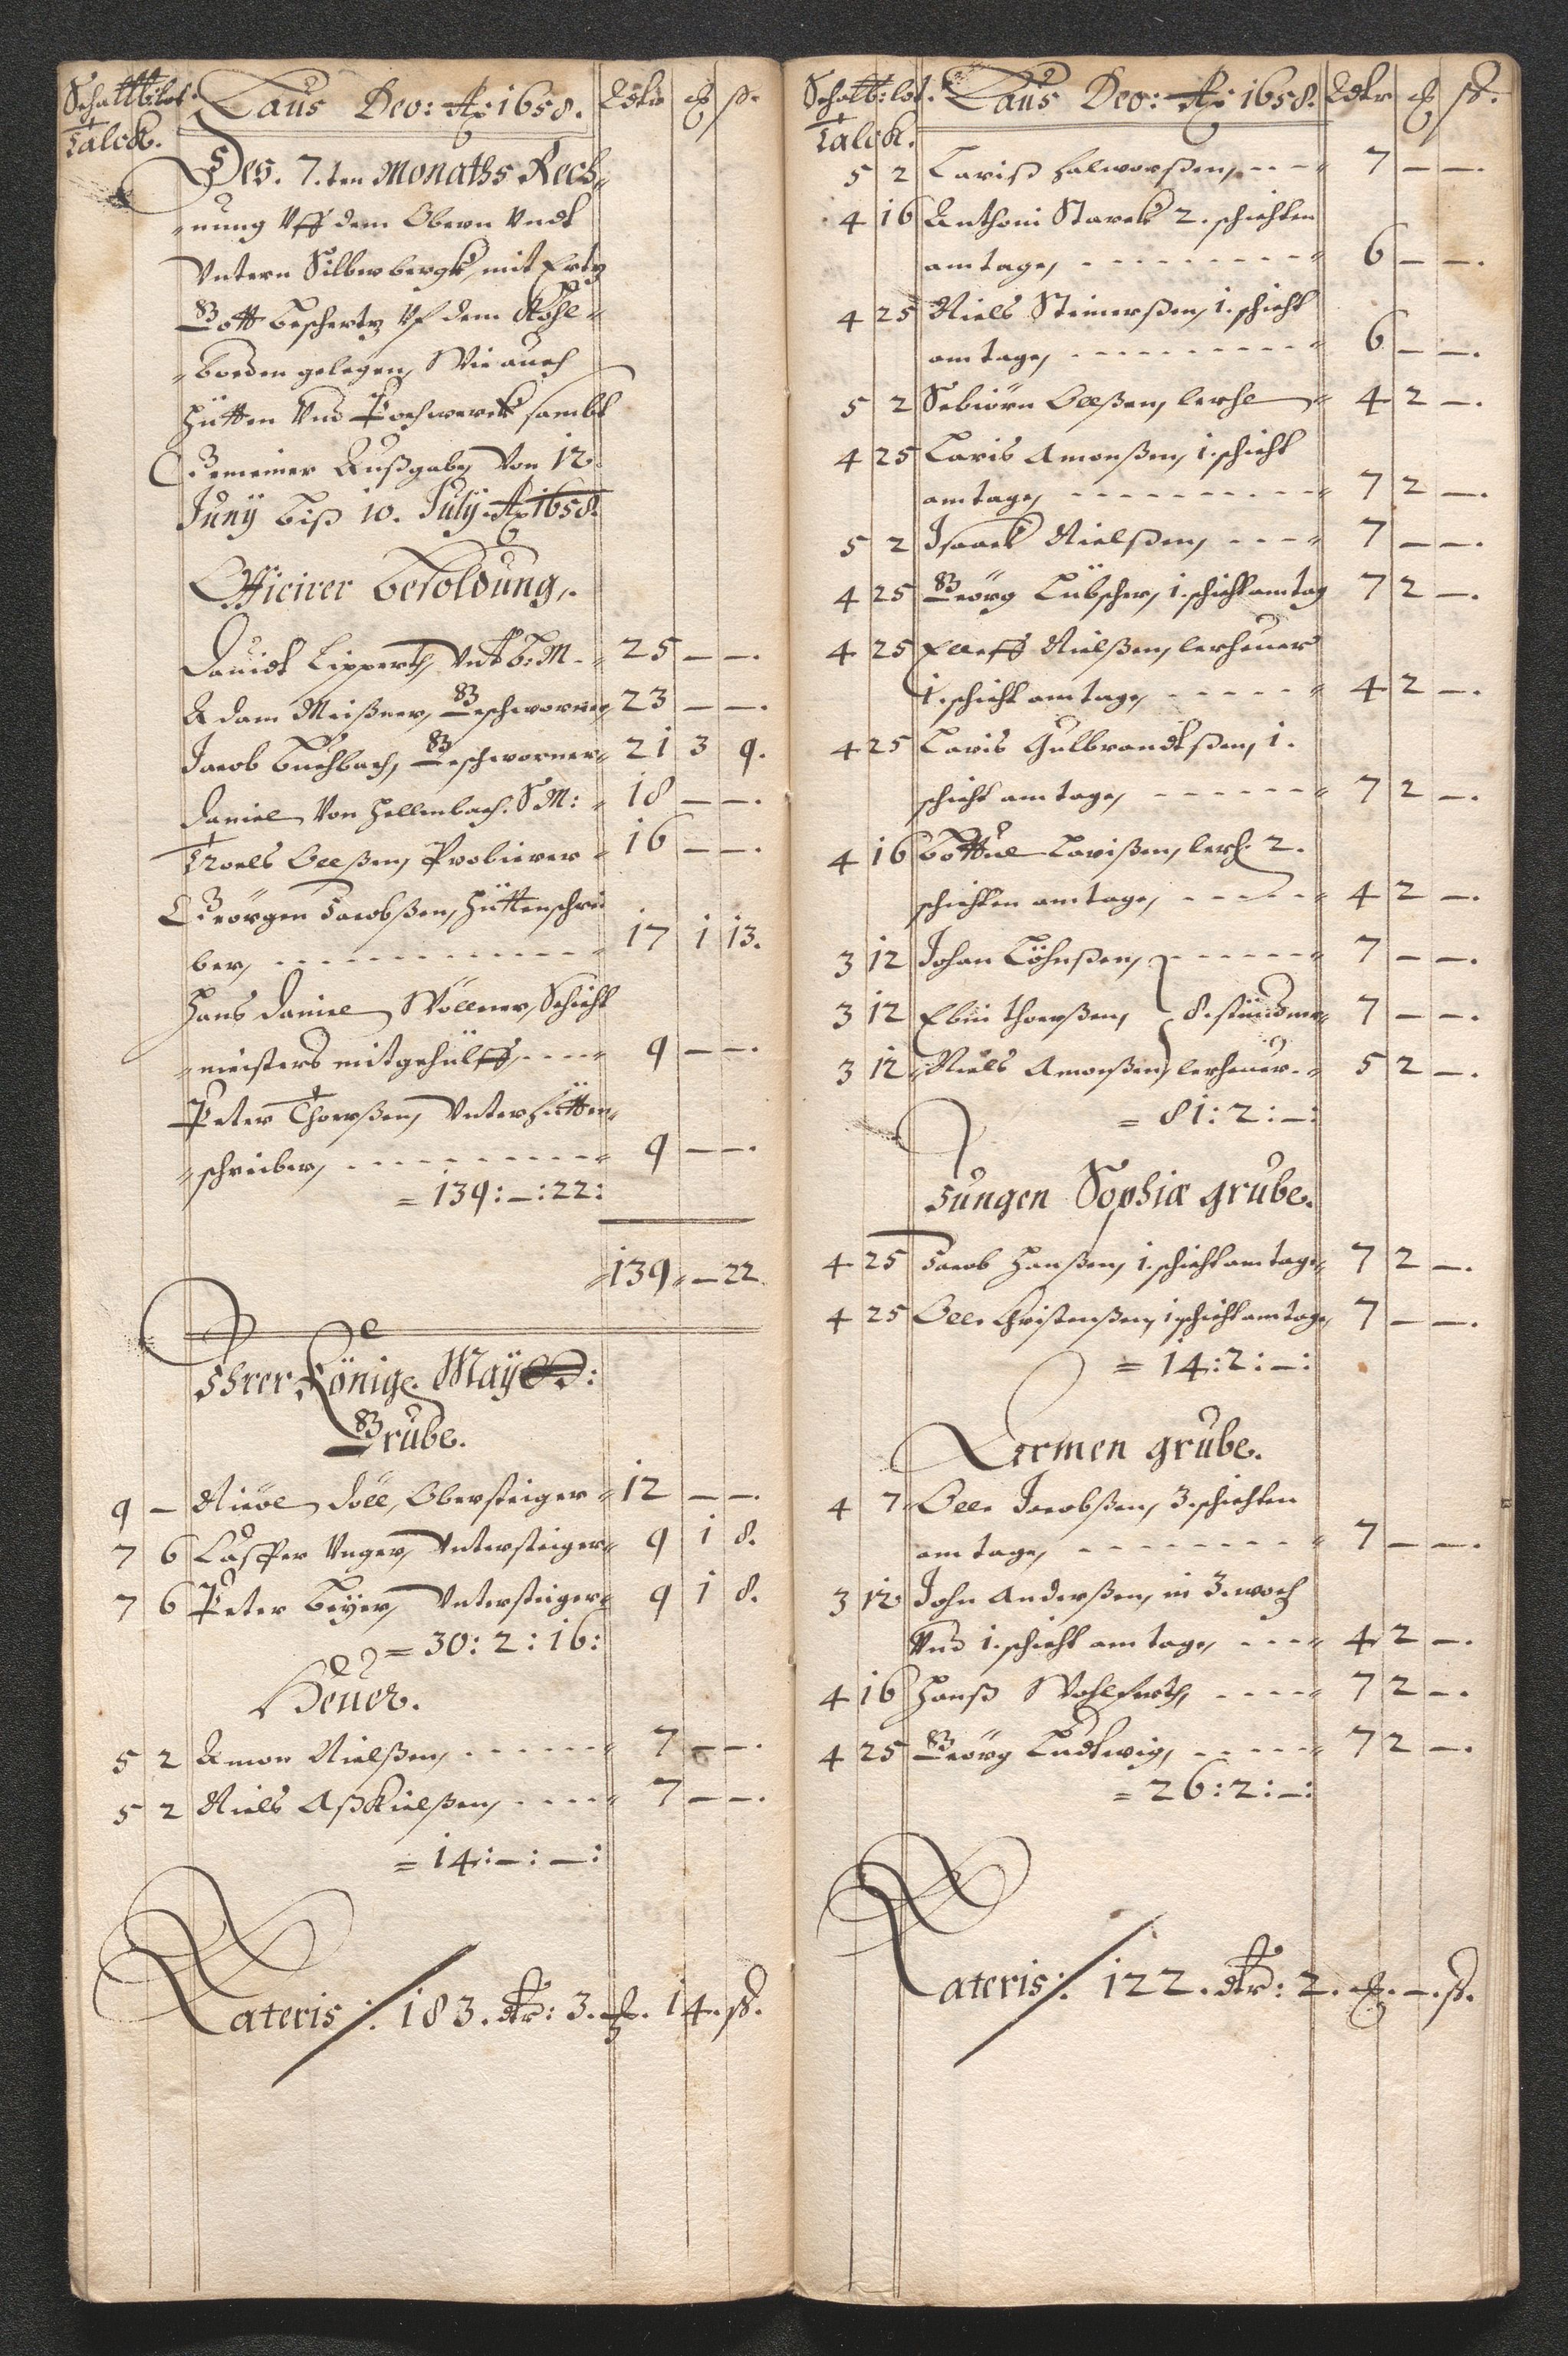 Schatt: lot. Laus Deo: Ao: 1658. Rdtr ß.
Talck.
Des. 7.ten Monaths Rech,,
,,nung Vff dem Obern Vndt
Vntern Silberbergk, mit Ertz
Gott bescherts Vf dem Kohl,,
,,boeden gelegen, Wie auch
Hütten Vnd Pochwerck sambt
Gemeiner Außgabe, Von 12.
Junij biß 10. Julij Ao 1658.
Officirer besoldung.
Dauidt Lippertt, Vnt B:M - 25 — —.
Adam Meißner, Geschworner, 23 — —.
Jacob Buchbach, Geschworner 21 3 9.
Daniel Von Hellenbach. SM: 18 — —.
Troels Olleßen, Probierer 16 — —.
Geörgen Jacobßen, Hüttenschrei
ber, - - - - 17 1 13.
Hans Daniel Wöllner, Schicht
,,meisters mitgehülff, - - - - 9 — —.
Peter Thorßen, Vnterhütten,,
,,schreiber, - - - - 9 — —.
= 139: —: 22:
139 — 22
Ihrer Königl. Maytt:
Grube.
9 — Nicol Doll, Obersteiger 12 — —.
7 6 Casper Vnger, Vntersteiger 9 1 8.
7 6 Peter Beyer, Vntersteiger 9 1 8.
= 30: 2: 16:
Heuer.
5 2 Amon Nielßen, - - - - 7 — —.
5 2 Niels Aßkielßen, - - - - 7 — —.
= 14: —: —:
Lateris:/: 183. dtr: 3. 14. ß.
Schatt: lot. Laus Deo: Ao: 1658. Rdtr ß.
Talck.
5 2 Lariß Halworßen, - - - 7 — —.
4 16 Anthoni Starck 2. schichten
am tage, - - - - 6 — —.
4 25 Niels Steinerßen, 1. schicht
am tage, - - - - 6 — —.
5 2 Sebiörn Olleßen, lerhe 4 2 —.
4 25 Laris Amonßen, 1. schicht
am tage, - - - - 7 2 —.
5 2 Isaack Nielßen, - - - - 7 — —.
4 25 Geörg Lübscher, 1. schicht am tag 7 2 —.
4 25 Elleff Nielßen, lerheuer
1. schicht am tage, - - - - 4 2 —.
4 25 Laris Gulbrandtßen, 1.
schicht am tage, - - - - 7 2 —.
4 16 Bottuel Larißen, lerh. 2.
schichten am tage, - - - - 4 2 —.
3 12 Johan Löhnßen, - - - - 7 — —.
3 12 Ebin Thorßen, 8. stündner 7 — —.
3 12 Niels Amonßen, lerheuer - 5 2 —.
= 81: 2: —:
Jungen Sophiæ grube.
4 25 Jacob Hanßen, 1. schicht am tage 7 2 —.
4 25 Olle Christenßen, 1 schicht am tage, 7 — —.
= 14: 2: —:
Lermen grube.
4 7 Olle Jacobßen, 3. schichten
am tage, - - - - 7 — —.
3 12 John Anderßen, in 3. woch
Vnd 1. schicht am tage, - - - 4 2 —.
4 16 Hanß Wohlfarth, - - - - 7 2 —.
4 25 Geörg Ludtwig, - - - - 7 2 —.
= 26: 2: —:
Lateris:/: 122. dtr: 2. —. ß.